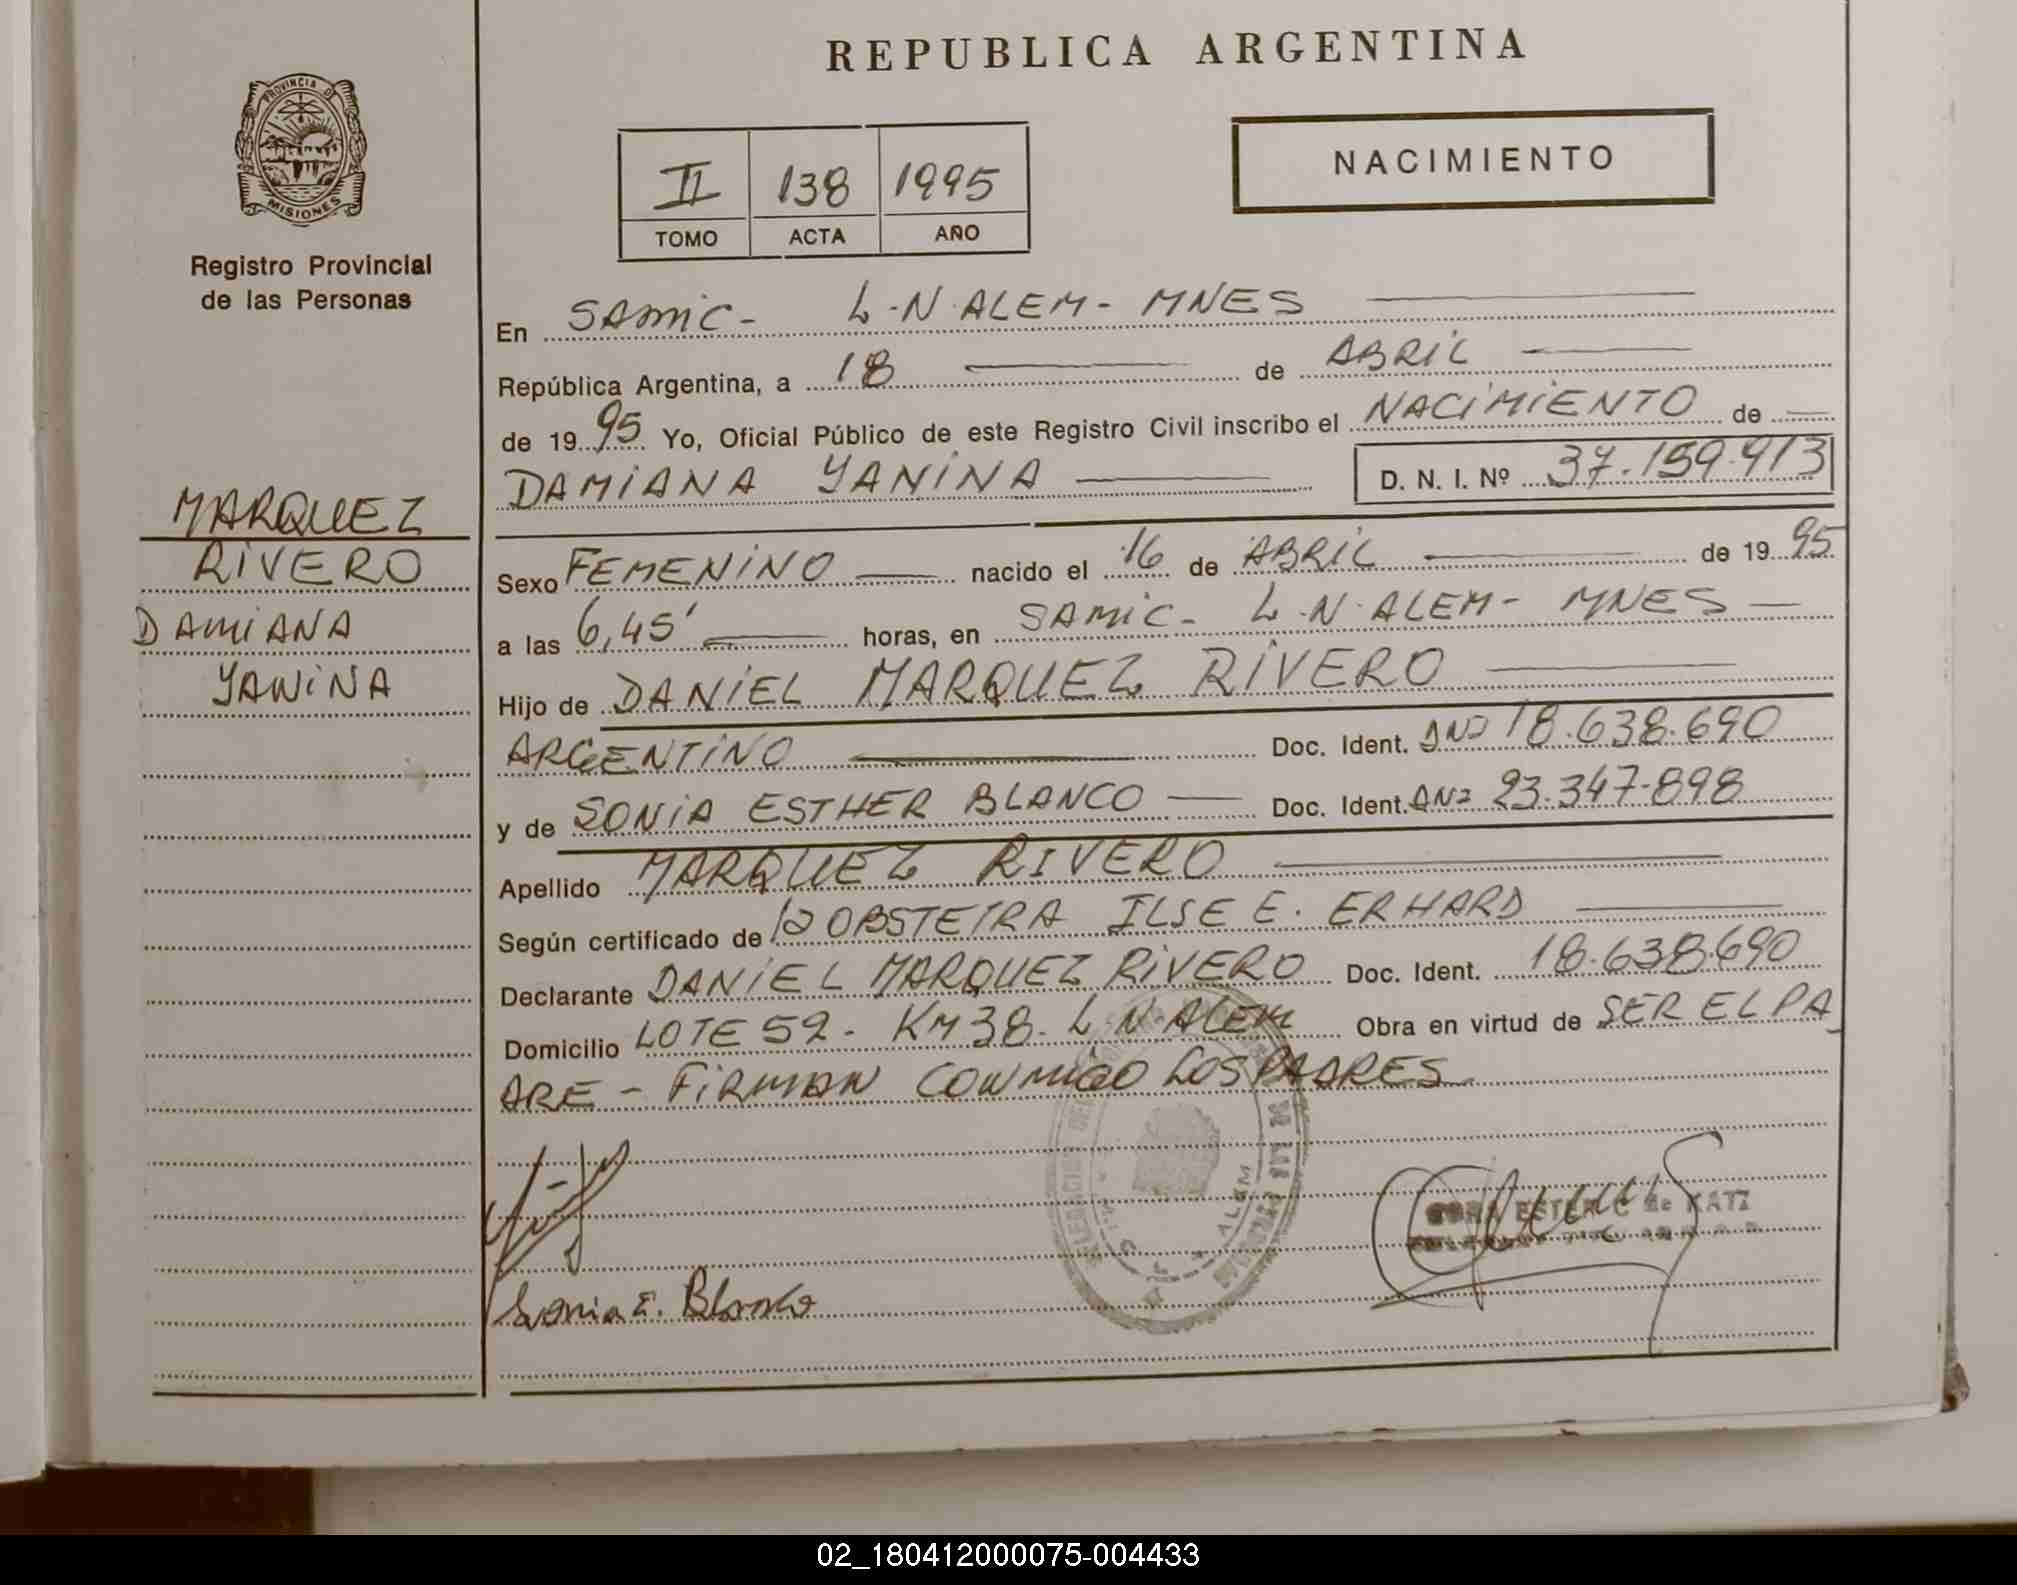 REPUBLICA ARGENTINA
PROVINCIA D
MISIONES
Registro Provincial
de las Personas
NACIMIENTO
II 138 1995
TOMO ACTA AÑO
En SAMIC - L.N. ALEM - MNES
República Argentina, a 18 de ABRIL
de 1995 Yo, Oficial Público de este Registro Civil inscribo el NACIMIENTO de
DAMIANA YANINA D. N. I. Nº 37.159.913
MARQUEZ
RIVERO
DAMIANA
YANINA
Sexo FEMENINO nacido el 16 de ABRIL de 1995
a las 6,45' horas, en SAMIC - L.N. ALEM - MNES
Hijo de DANIEL MARQUEZ RIVERO
ARGENTINO Doc. Ident. DNI 18.638.690
y de SONIA ESTHER BLANCO Doc. Ident. DNI 23.347.898
Apellido MARQUEZ RIVERO
Según certificado de la OBSTETRA ILSE E. ERHARD
Declarante DANIEL MARQUEZ RIVERO Doc. Ident. 18.638.690
Domicilio LOTE 52 - KM 38 - L.N. ALEM Obra en virtud de SER EL PA
DRE - FIRMAN CONMIGO LOS PADRES
ALEM
ESTER C de KATZ
Sonia E. Blanco
02_180412000075-004433